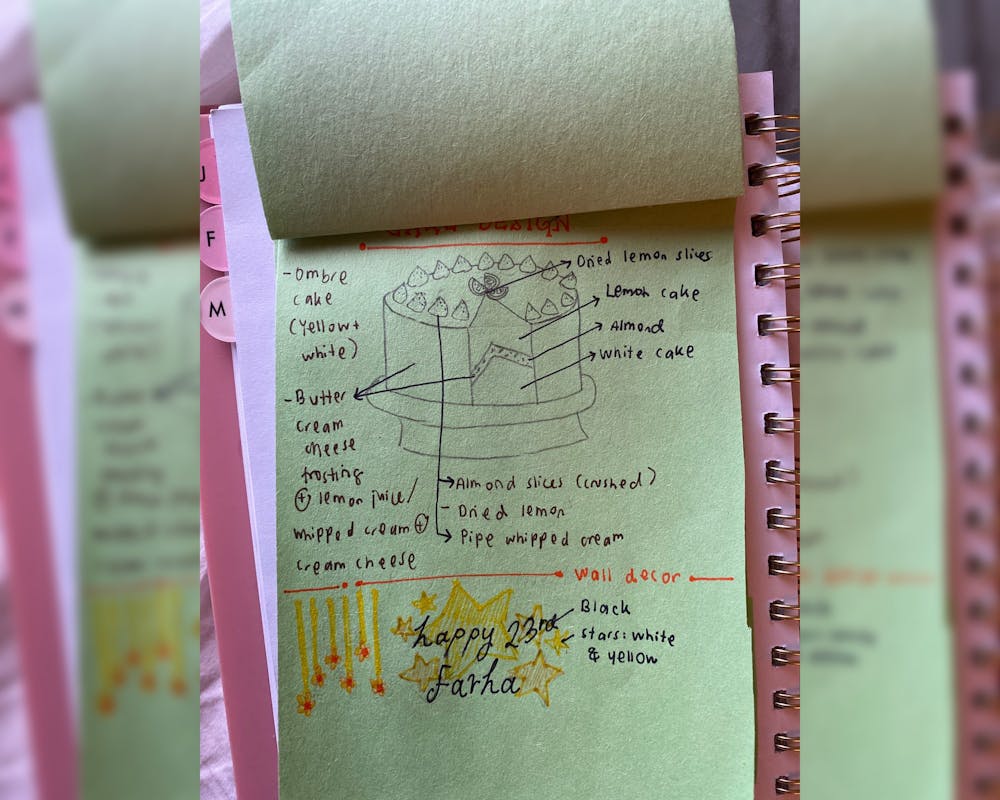 J
F
M
DESIGN
- Ombre
cake
(Yellow +
white)
- Butter
cream
cheese
frosting
⊕ lemon juice/
whipped cream ⊕
cream cheese
Dried lemon slices
Lemon cake
Almond
White cake
Almond slices (crushed)
- Dried lemon
Pipe whipped cream
wall decor
happy 23rd
Farha
Black
stars: white
& yellow